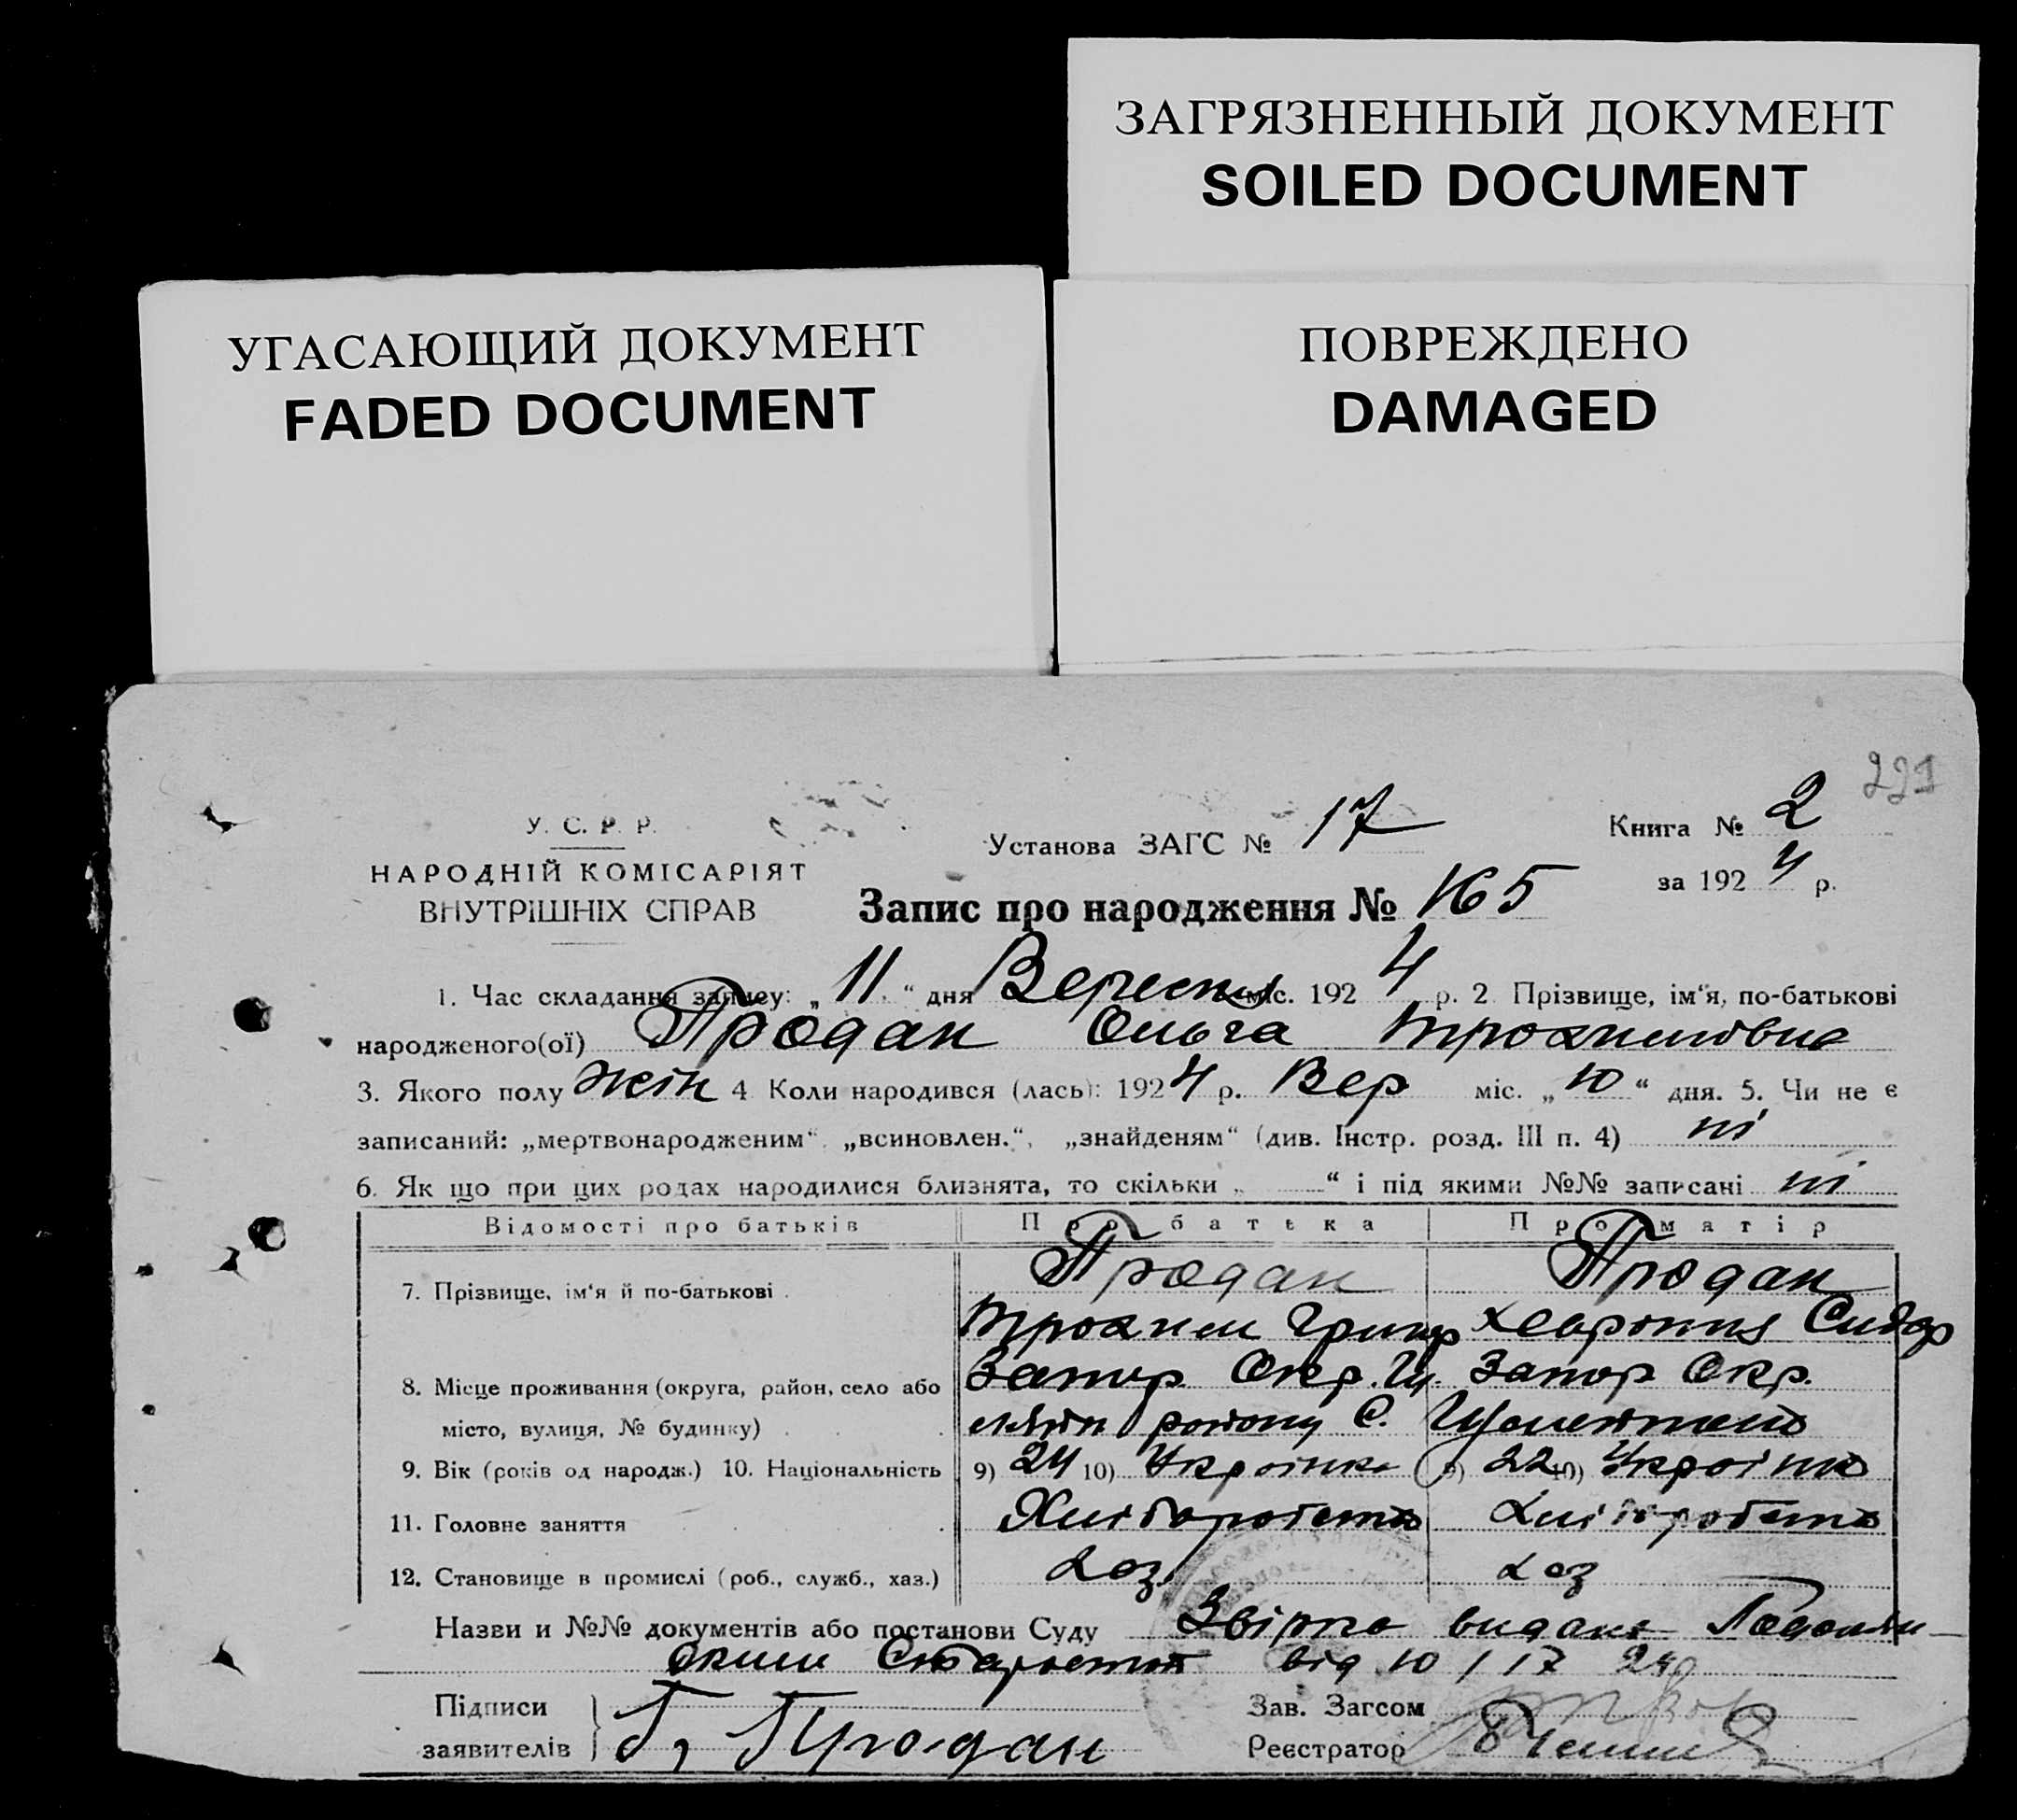 ЗАГРЯЗНЕННЫЙ ДОКУМЕНТ
SOILED DOCUMENT
УГАСАЮЩИЙ ДОКУМЕНТ
FADED DOCUMENT
ПОВРЕЖДЕНО
DAMAGED
221
У. С. Р. Р.
НАРОДНІЙ КОМІСАРІЯТ
ВНУТРІШНІХ СПРАВ
Установа ЗАГС № 17
Книга № 2
за 1924 р.
Запис про народження № 165
1. Час складання запису: „11“ дня Вересня міс. 1924 р. 2 Прізвище, ім‘я, по-батькові
народженого(ої) Продан Ольга Трохимовна
3. Якого полу жін 4 Коли народився (лась): 1924 р. Вер міс. „10“ дня. 5. Чи не є
записаний: „мертвонародженим“, „всиновлен.“, „знайденям“ (див. Інстр. розд. III п. 4) ні
6. Як що при цих родах народилися близнята, то скільки „ “ і під якими №№ записані ні
Відомості про батьків Про батька Про матір
7. Прізвище, ім‘я й по-батькові Продан Продан
Трохим Григор Хевронія Сидор
8. Місце проживання (округа, район, село або Запор Окр. Запор Окр.
місто, вулиця, № будинку) району С.
9. Вік (років од народж.) 10. Національність 9) 24 10) Українка 9) 22 10) Українка
11. Головне заняття Хліборобство Хліборобство
12. Становище в промислі (роб., служб., хаз.) хоз хоз
Назви и №№ документів або постанови Суду видана
від 10/17 24р
Підписи
заявителів Т. Продан
Зав. Загсом
Реєстратор